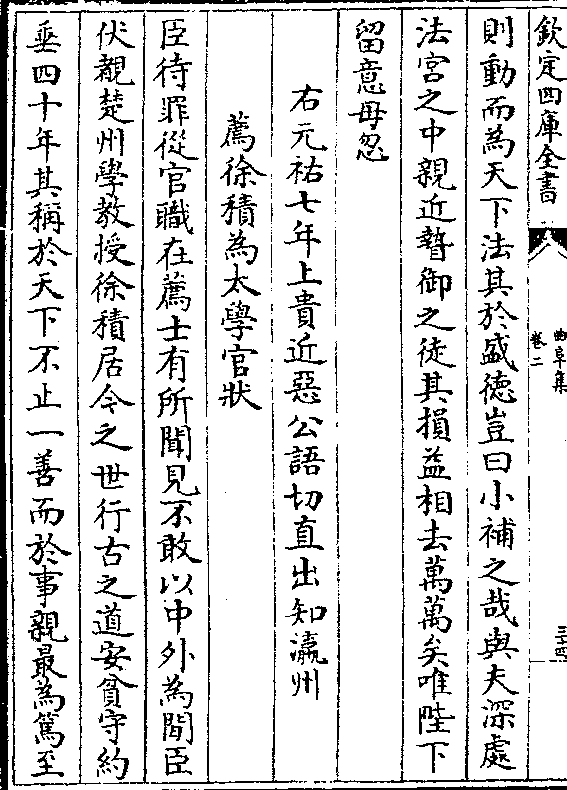 欽定四庫全書
曲阜集
卷二
三十四
則動而為天下法其於盛徳豈曰小補之哉與夫深處
法宮之中親近暬御之徒其損益相去萬萬矣唯陛下
留意毋忽
右元祐七年上貴近惡公語切直出知瀛州
薦徐積為太學官狀
臣待罪從官職在薦士有所聞見不敢以中外為間臣
伏覩楚州學教授徐積居今之世行古之道安貧守約
垂四十年其稱於天下不止一善而於事親最為篤至